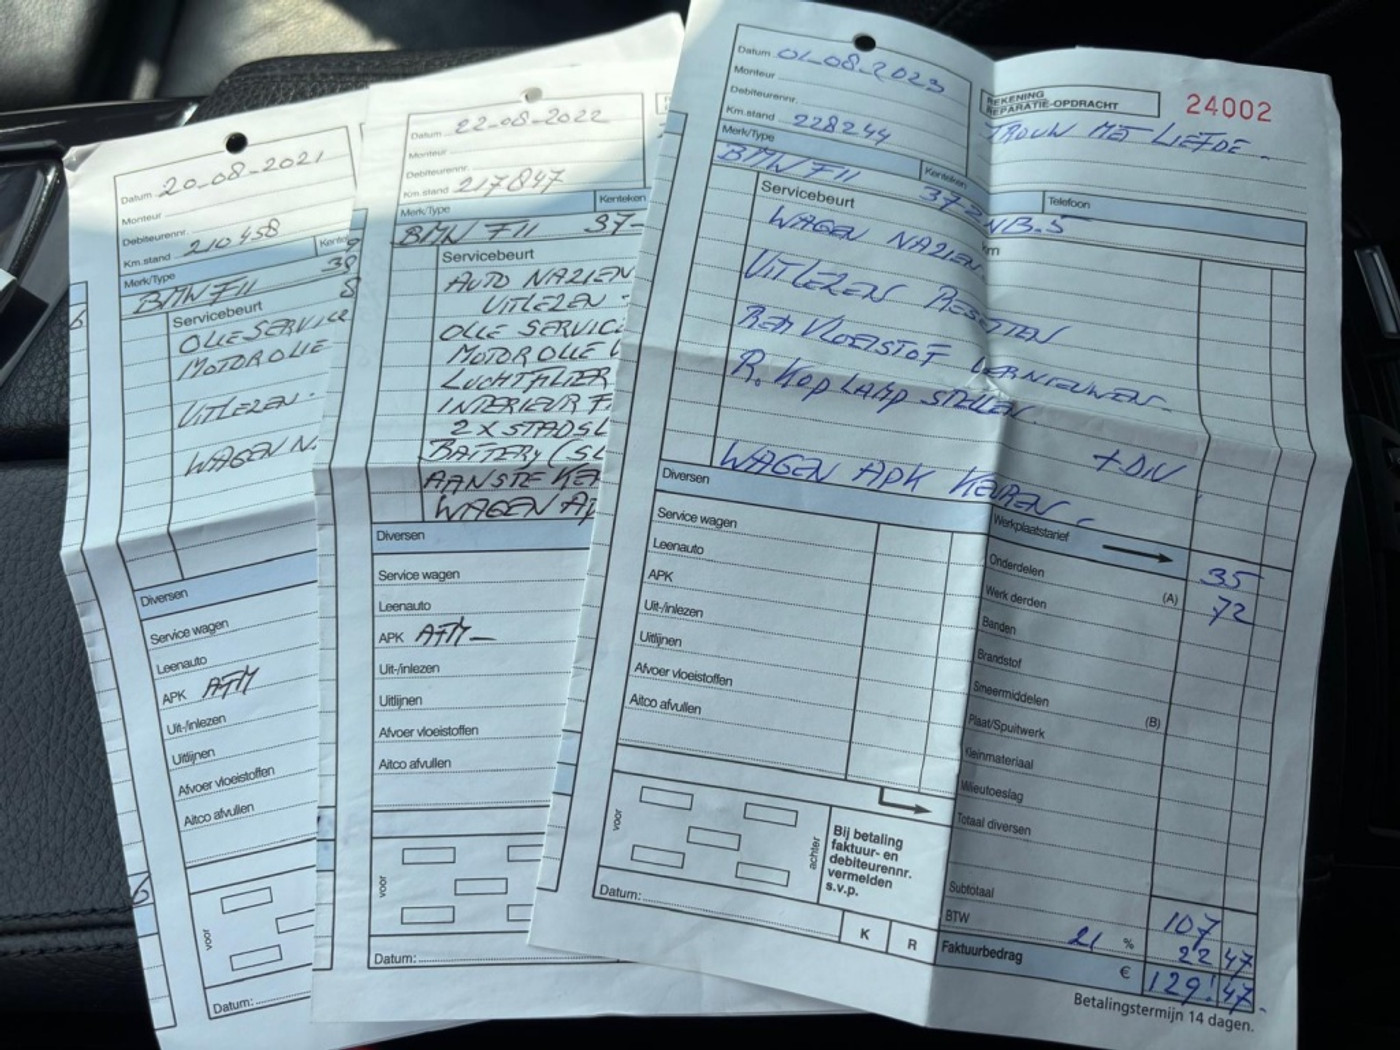 Datum 20-08-2021
Monteur
Debiteurennr.
Km.stand 210458
Merk/Type
BMW F11
Servicebeurt
OLIE SERVICE
MOTOROLIE
UITLEZEN -
WAGEN N.
Diversen
Service wagen
Leenauto
APK AFM
Uit-/inlezen
Uitlijnen
Afvoer vloeistoffen
Aitco afvullen
voor
Datum:
Datum 22-08-2022
Monteur
Debiteurennr.
Km.stand 217847
Merk/Type Kenteken
BMW F11 37-
Servicebeurt
AUTO NAZIEN
UITLEZEN -
OLIE SERVICE
MOTOR OLIE
LUCHTFILTER
INTERIEUR F
2 X STADSL
BATTERY (SL
WAGEN AP
Diversen
Service wagen
Leenauto
APK AFM
Uit-/inlezen
Uitlijnen
Afvoer vloeistoffen
Aitco afvullen
voor
Datum:
Datum 01-08-2023
Monteur
Debiteurennr.
Km.stand 228244
Merk/Type Kenteken
BMW F11
REKENING
REPARATIE-OPDRACHT
24002
TROUW MET LIEFDE -
Telefoon
Servicebeurt
WAGEN NAZIEN
UITLEZEN RESETTEN
REMVLOEISTOF VERNIEUWEN -
R. KOPLAMP STELLEN.
WAGEN APK KEUREN -
Diversen
Service wagen
Leenauto
APK
Uit-/inlezen
Uitlijnen
Afvoer vloeistoffen
Aitco afvullen
Werkplaatstarief
Onderdelen (A) 35
Werk derden 72
Banden
Brandstof
Smeermiddelen (B)
Plaat/Spuitwerk
Kleinmateriaal
Milieutoeslag
Totaal diversen
Subtotaal 107
BTW 21 % 22 47
Faktuurbedrag € 129 47
voor
achter
Bij betaling
faktuur- en
debiteurennr.
vermelden
s.v.p.
Datum:
K R
Betalingstermijn 14 dagen.